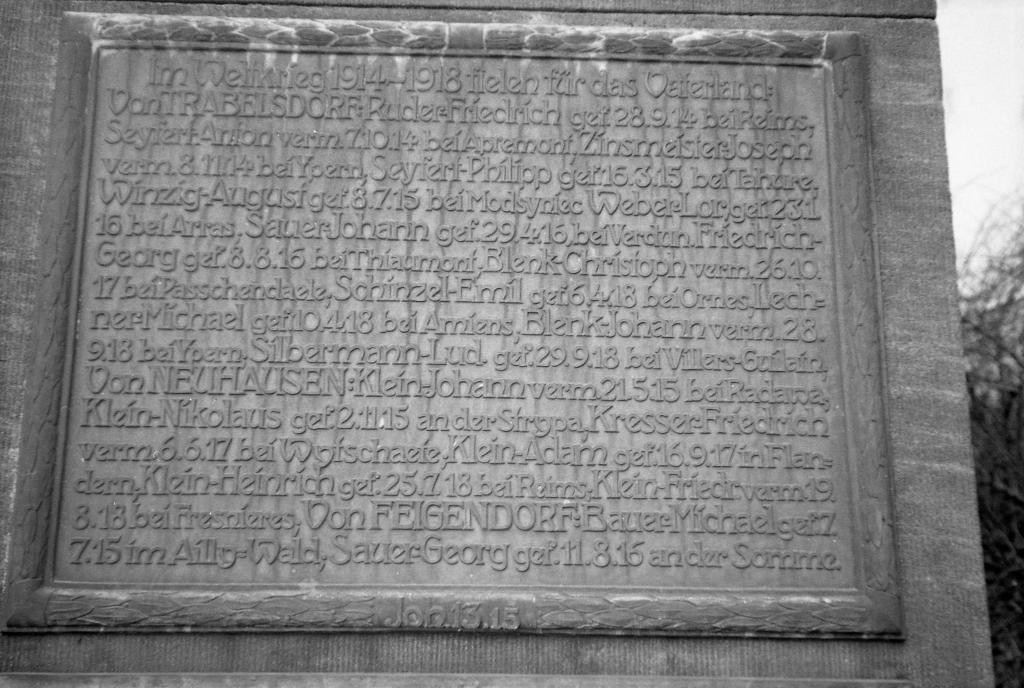 Im Weltkrieg 1914–1918 fielen für das Vaterland:
Von TRABELSDORF: Ruder-Friedrich gef. 28.9.14 bei Reims,
Seyfert-Anton verm. 7.10.14 bei Apremont, Zinsmeister-Joseph
verm. 8.11.14 bei Ypern, Seyfert-Philipp gef. 16.3.15 bei Tahure,
Winzig-August gef. 8.7.15 bei Modsyniec Weber-Lor. gef. 23.1.
16 bei Arras, Sauer-Johann gef. 29.4.16 bei Verdun, Friedrich-
Georg gef. 8.8.16 bei Thiaumont, Blenk-Christoph verm. 26.10.
17 bei Passchendaele, Schinzel-Emil gef. 6.4.18 bei Ornes, Lech-
ner-Michael gef. 10.4.18 bei Amiens, Blenk-Johann verm. 28.
9.18 bei Ypern, Silbermann-Lud. gef. 29.9.18 bei Villers-Guilain,
Von NEUHAUSEN: Klein-Johann verm. 21.5.15 bei Radawa,
Klein-Nikolaus gef. 2.11.15 an der Strypa, Kresser-Friedrich
verm. 6.6.17 bei Wytschaete, Klein-Adam gef. 16.9.17 in Flan-
dern, Klein-Heinrich gef. 25.7.18 bei Reims, Klein-Friedr. verm. 19.
8.18 bei Fresnieres, Von FEIGENDORF: Bauer-Michael gef. 7.
7.15 im Ailly-Wald, Sauer-Georg gef. 11.8.16 an der Somme.
Joh. 13,15